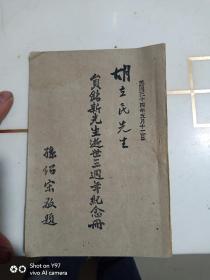 民國三十四年五月十二日
胡立民先生
員銘新先生逝世三週年紀念冊
孫紹宗敬題
SHOT ON Y97
VIVO DUAL CAMERA